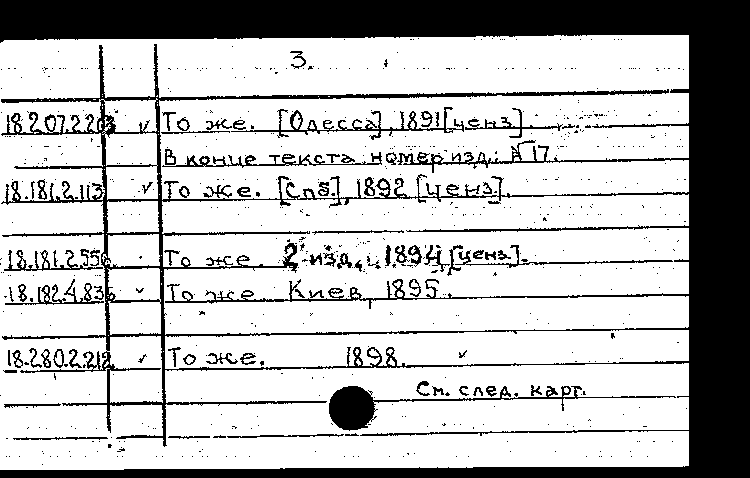 3.
18.207.2.203 v То же. [Одесса], 1891 [ценз].
В конце текста номер изд.: № 17.
18.181.2.113 v То же. [Спб.], 1892 [ценз].
18.181.2.556 То же. 2 изд., 1894 [ценз].
18.182.4.836 v То же Киев, 1895.
18.280.2.212 v То же. 1898. v
См. след. карт.